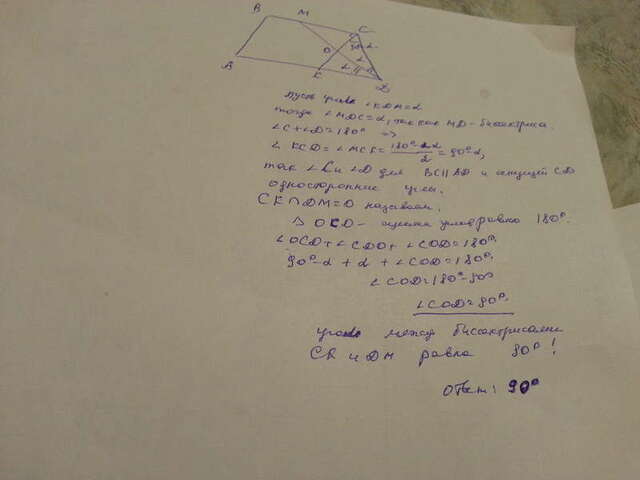 B M C
O
A K D
пусть угол ∠KDM=α
тогда ∠MDC=α, так как MD-биссектриса.
∠C+∠D=180° =>
∠KCD=∠MCK=(180°-2α)/2=90°-α,
так ∠C и ∠D для BC||AD и секущей CD
односторонние углы.
CK∩DM=O назовём.
△ OCD- сумма углов равно 180°.
∠OCD+∠CDO+∠COD=180°.
90°-α+α+∠COD=180°.
∠COD=180°-90°
∠COD=90°.
угол между биссектрисами
CK и DM равна 90°!
Ответ: 90°